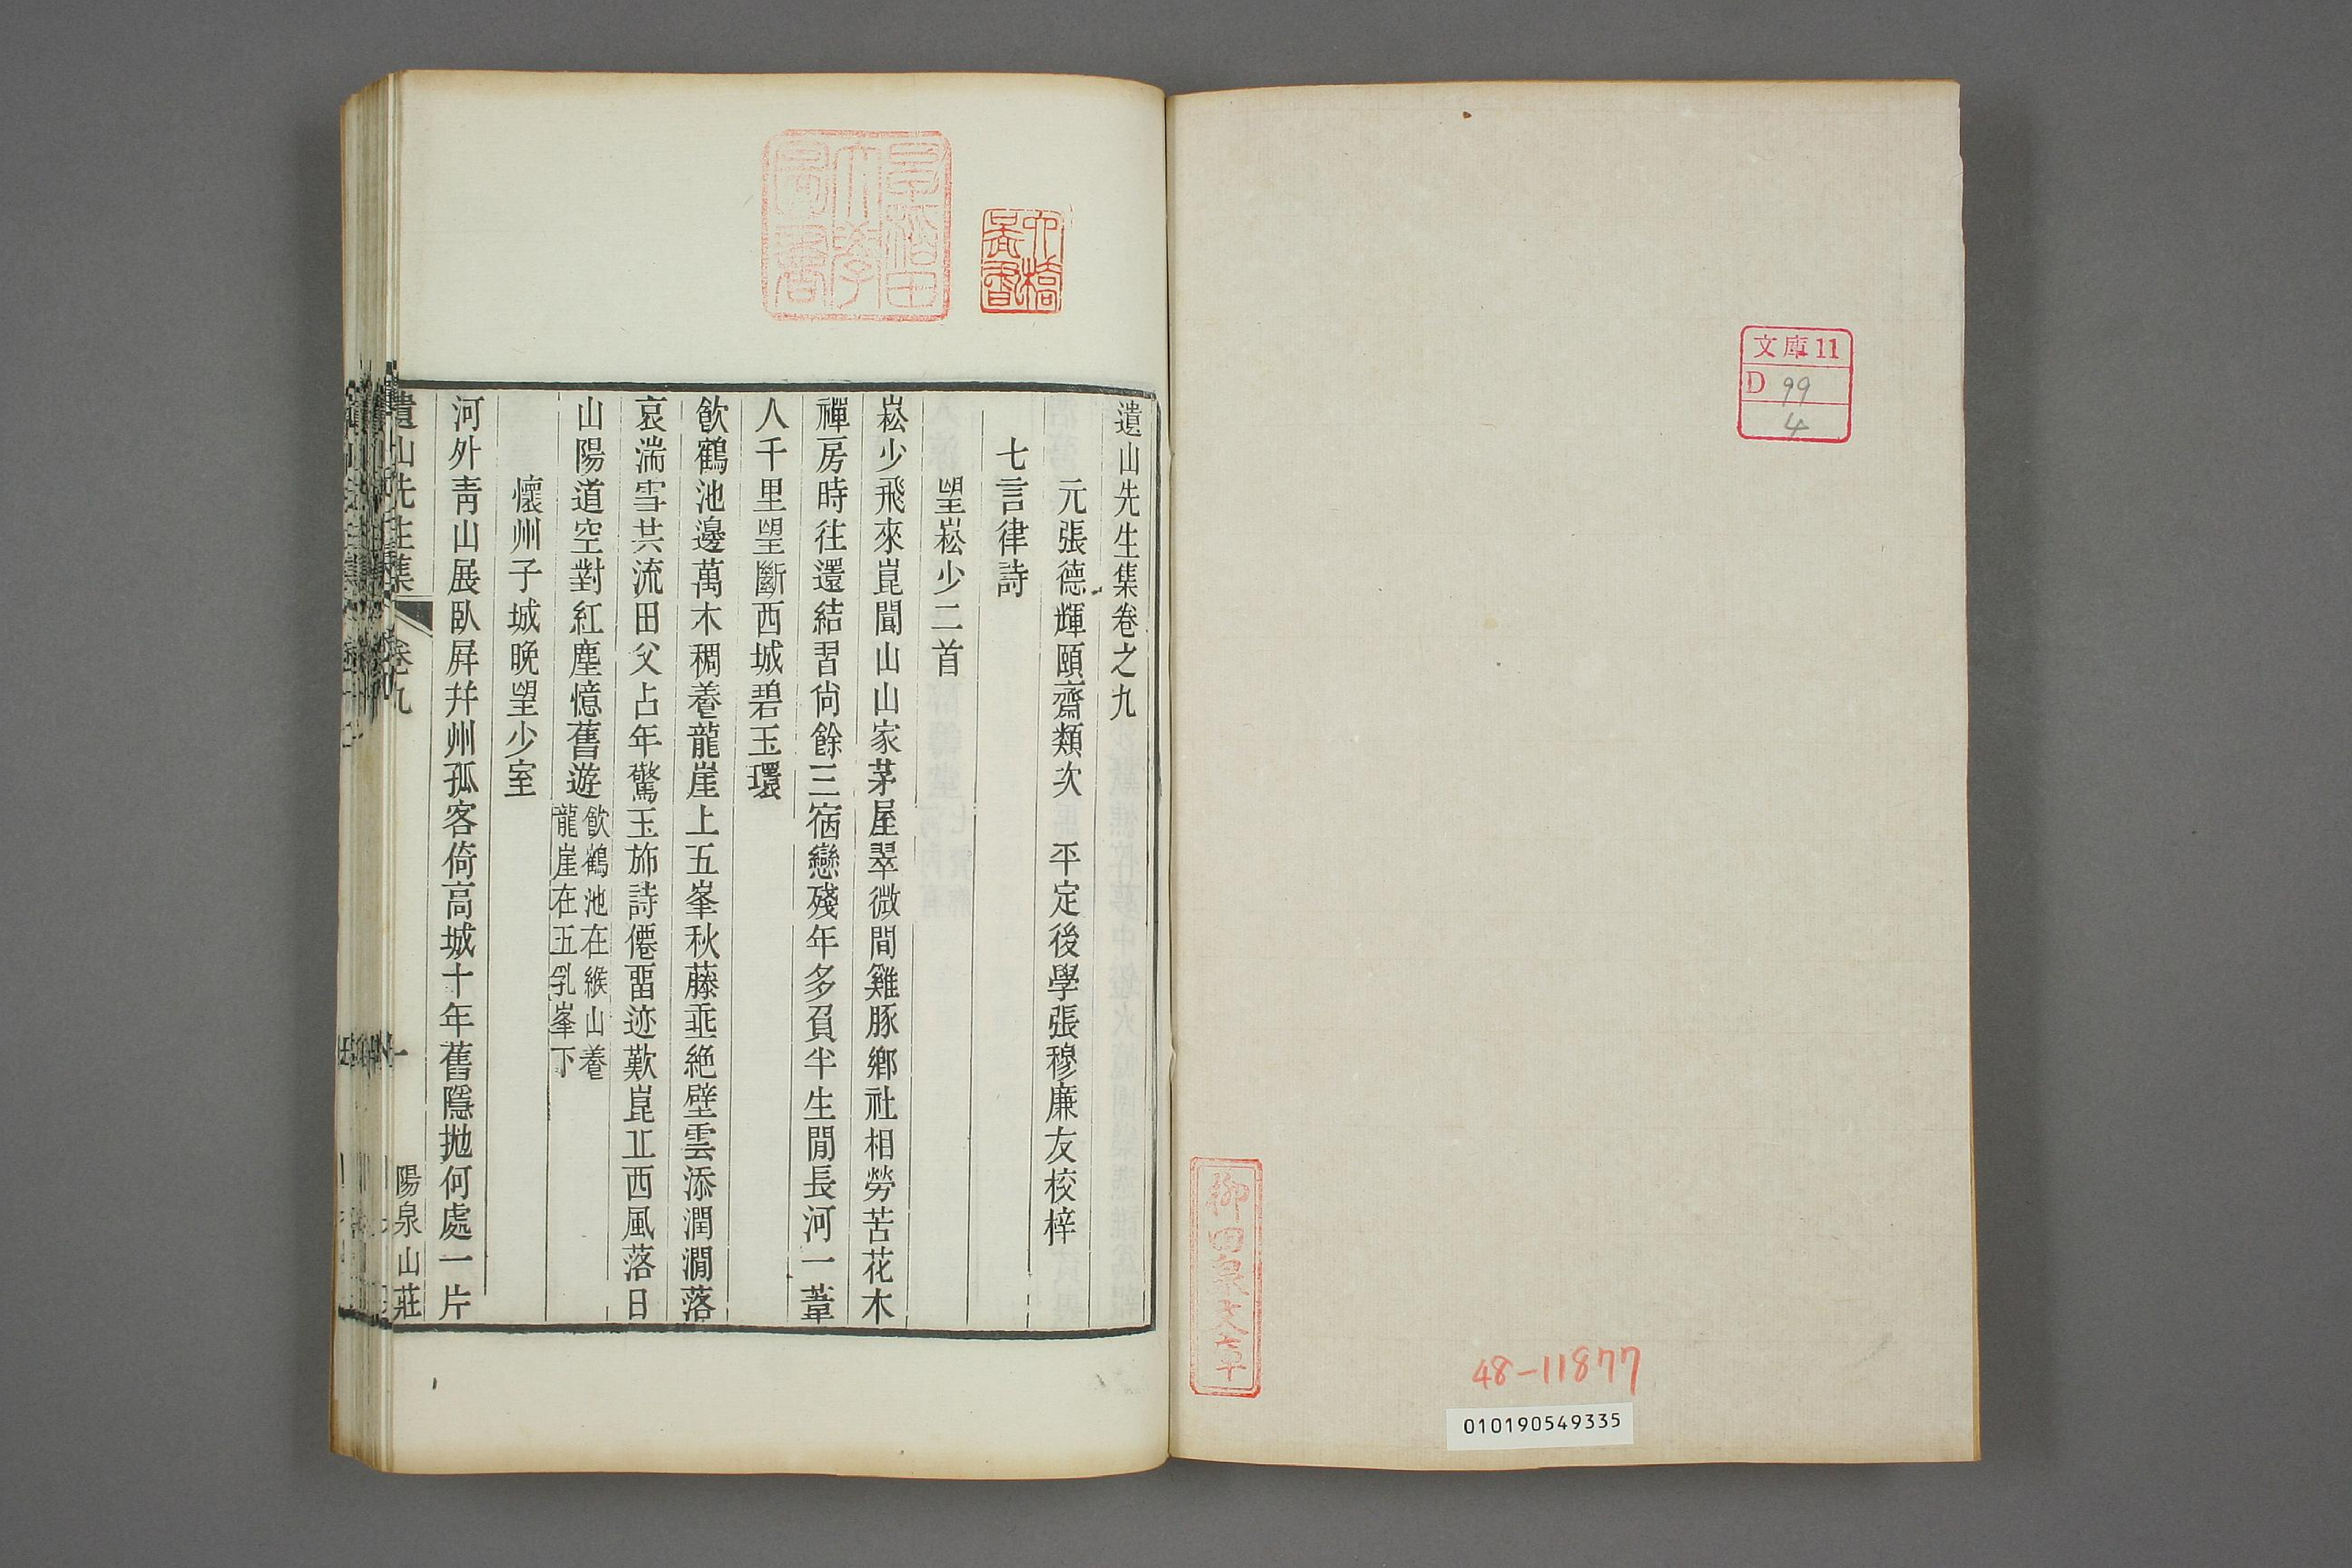 文庫11
D 99
4
柳田泉文章
48-11877
010190549335
早稲田大學圖書
遺山先生集卷之九
元張德輝頤齋類次　平定後學張穆廉友校梓
七言律詩
望崧少二首
崧少飛來崑閬山山家茅屋翠微間雞豚鄉社相勞苦花木
禪房時往還結習尙餘三宿戀殘年多負半生閒長河一葦
人千里望斷西城碧玉環
飮鶴池邊萬木稠養龍崖上五峯秋藤垂絶壁雲添潤澗落
哀湍雪共流田父占年驚玉斾詩僊畱迹歎崑丘西風落日
山陽道空對紅塵憶舊遊飮鶴池在緱山養
龍崖在五乳峯下
懷州子城晚望少室
河外靑山展臥屛幷州孤客倚高城十年舊隱抛何處一片
遺山先生集　卷九　一　陽泉山莊